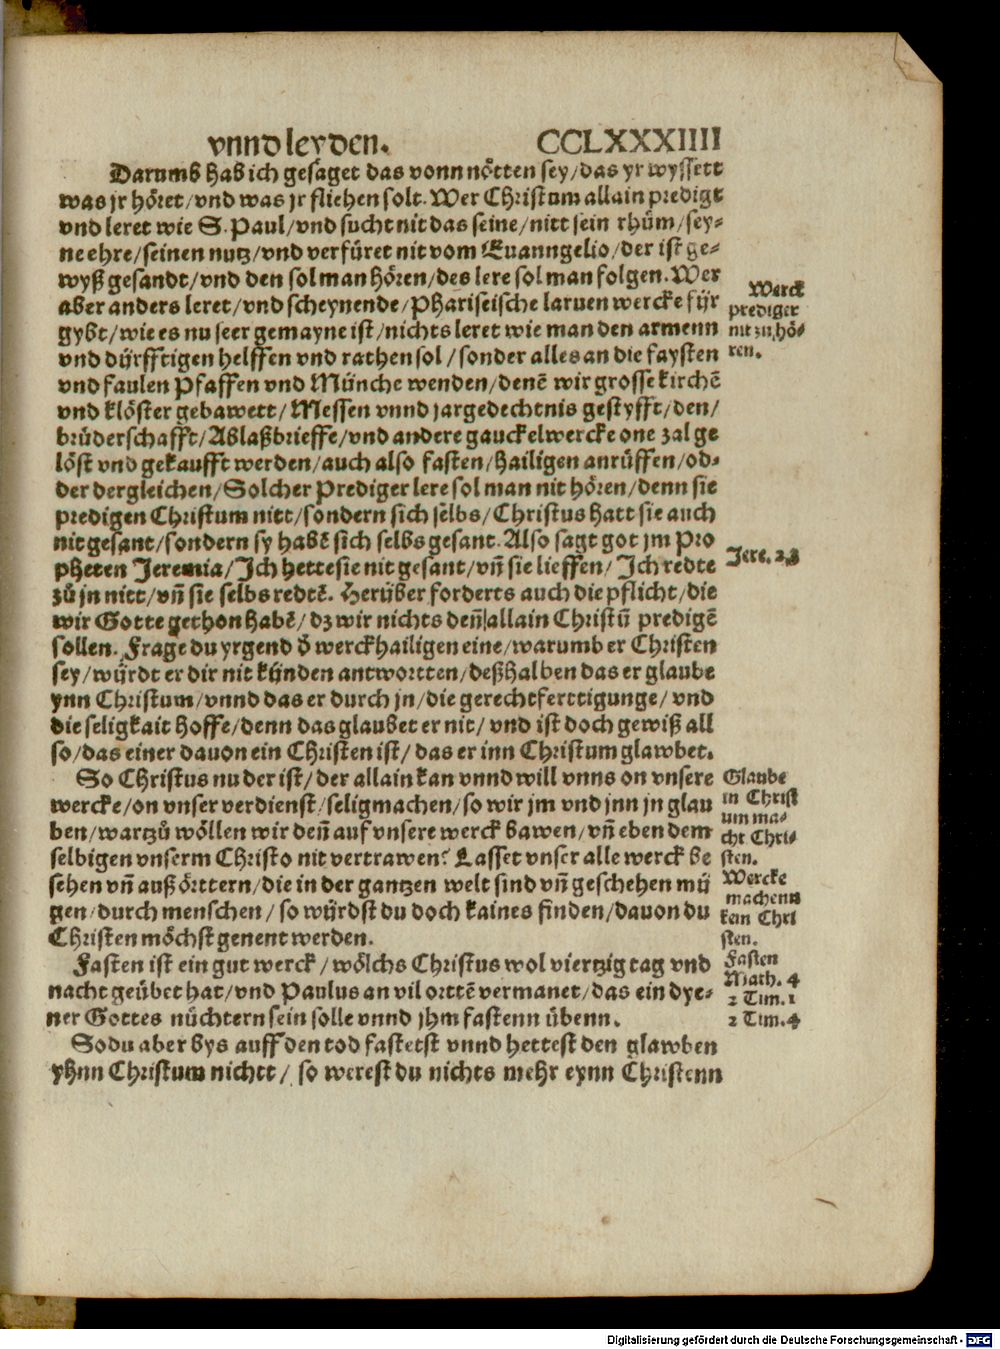 vnnd leyden. CCLXXXIIII
Darumb hab ich gesaget das vonn nötten sey/das yr wyssett
was jr höret/vnd was jr fliehen solt. Wer Christum allain predigt
vnd leret wie S. Paul/vnd sucht nit das seine/nitt sein rhům/sey-
ne ehre/seinen nutz/vnd verfüret nit vom Euanngelio/der ist ge-
wyß gesandt/vnd den sol man hören/des lere sol man folgen. Wer
aber anders leret/vnd scheynende/Phariseische laruen wercke für
gybt/wie es nu seer gemayne ist/nichts leret wie man den armenn
vnd dürfftigen helffen vnd rathen sol/sonder alles an die faysten
vnd faulen Pfaffen vnd Münche wenden/denē wir grosse kirchē
vnd klöster gebawett/Messen vnnd jargedechtnis gestyfft/den/
brüderschafft/Ablaßbrieffe/vnd andere gauckelwercke one zal ge
löst vnd gekaufft werden/auch also fasten/Hailigen anrüffen/od-
der dergleichen/Solcher Prediger lere sol man nit hören/denn sie
predigen Christum nitt/sondern sich selbs/Christus hatt sie auch
nit gesant/sondern sy habē sich selbs gesant. Also sagt got jm Pro
pheten Jeremia/Ich hette sie nit gesant/vñ sie lieffen/Ich redte
zů jn nitt/vñ sie selbs redtē. Herüber forderts auch die pflicht/die
wir Gotte gethon habē/dz wir nichts deñ allain Christū predigē
sollen. Frage du yrgend ď werckhailigen eine/warumb er Christen
sey/würdt er dir nit künden antwortten/deßhalben das er glaube
ynn Christum/vnnd das er durch jn/die gerechtferttigunge/vnd
die seligkait hoffe/denn das glaubet er nit/vnd ist doch gewiß all
so/das einer dauon ein Christen ist/das er inn Christum glawbet.
So Christus nu der ist/der allain kan vnnd will vnns on vnsere
wercke/on vnser verdienst/seligmachen/so wir jm vnd jnn jn glau
ben/wartzů wöllen wir deñ auf vnsere werck bawen/vñ eben dem
selbigen vnserm Christo nit vertrawen? Lasset vnser alle werck be
sehen vñ auß örttern/die in der gantzen welt sind vñ geschehen mü
gen/durch menschen/so würdst du doch kaines finden/dauon du
Christen möchst genent werden.
Fasten ist ein gut werck/wölchs Christus wol viertzig tag vnd
nacht geübet hat/vnd Paulus an vil orttē vermanet/das ein dye-
ner Gottes nüchtern sein solle vnnd jhm fastenn übenn.
So du aber bys auff den tod fastetst vnnd hettest den glawben
yhnn Christum nichtt/so werest du nichts mehr eynn Christenn
Werck
prediger
nit zu hö-
ren.
Jere. 23
Glaube
in Christ
um ma-
cht Chri-
sten.
Wercke
machenn
kein Chri
sten.
Fasten
Math. 4
2 Tim. 1
2 Tim. 4
Digitalisierung gefördert durch die Deutsche Forschungsgemeinschaft - DFG